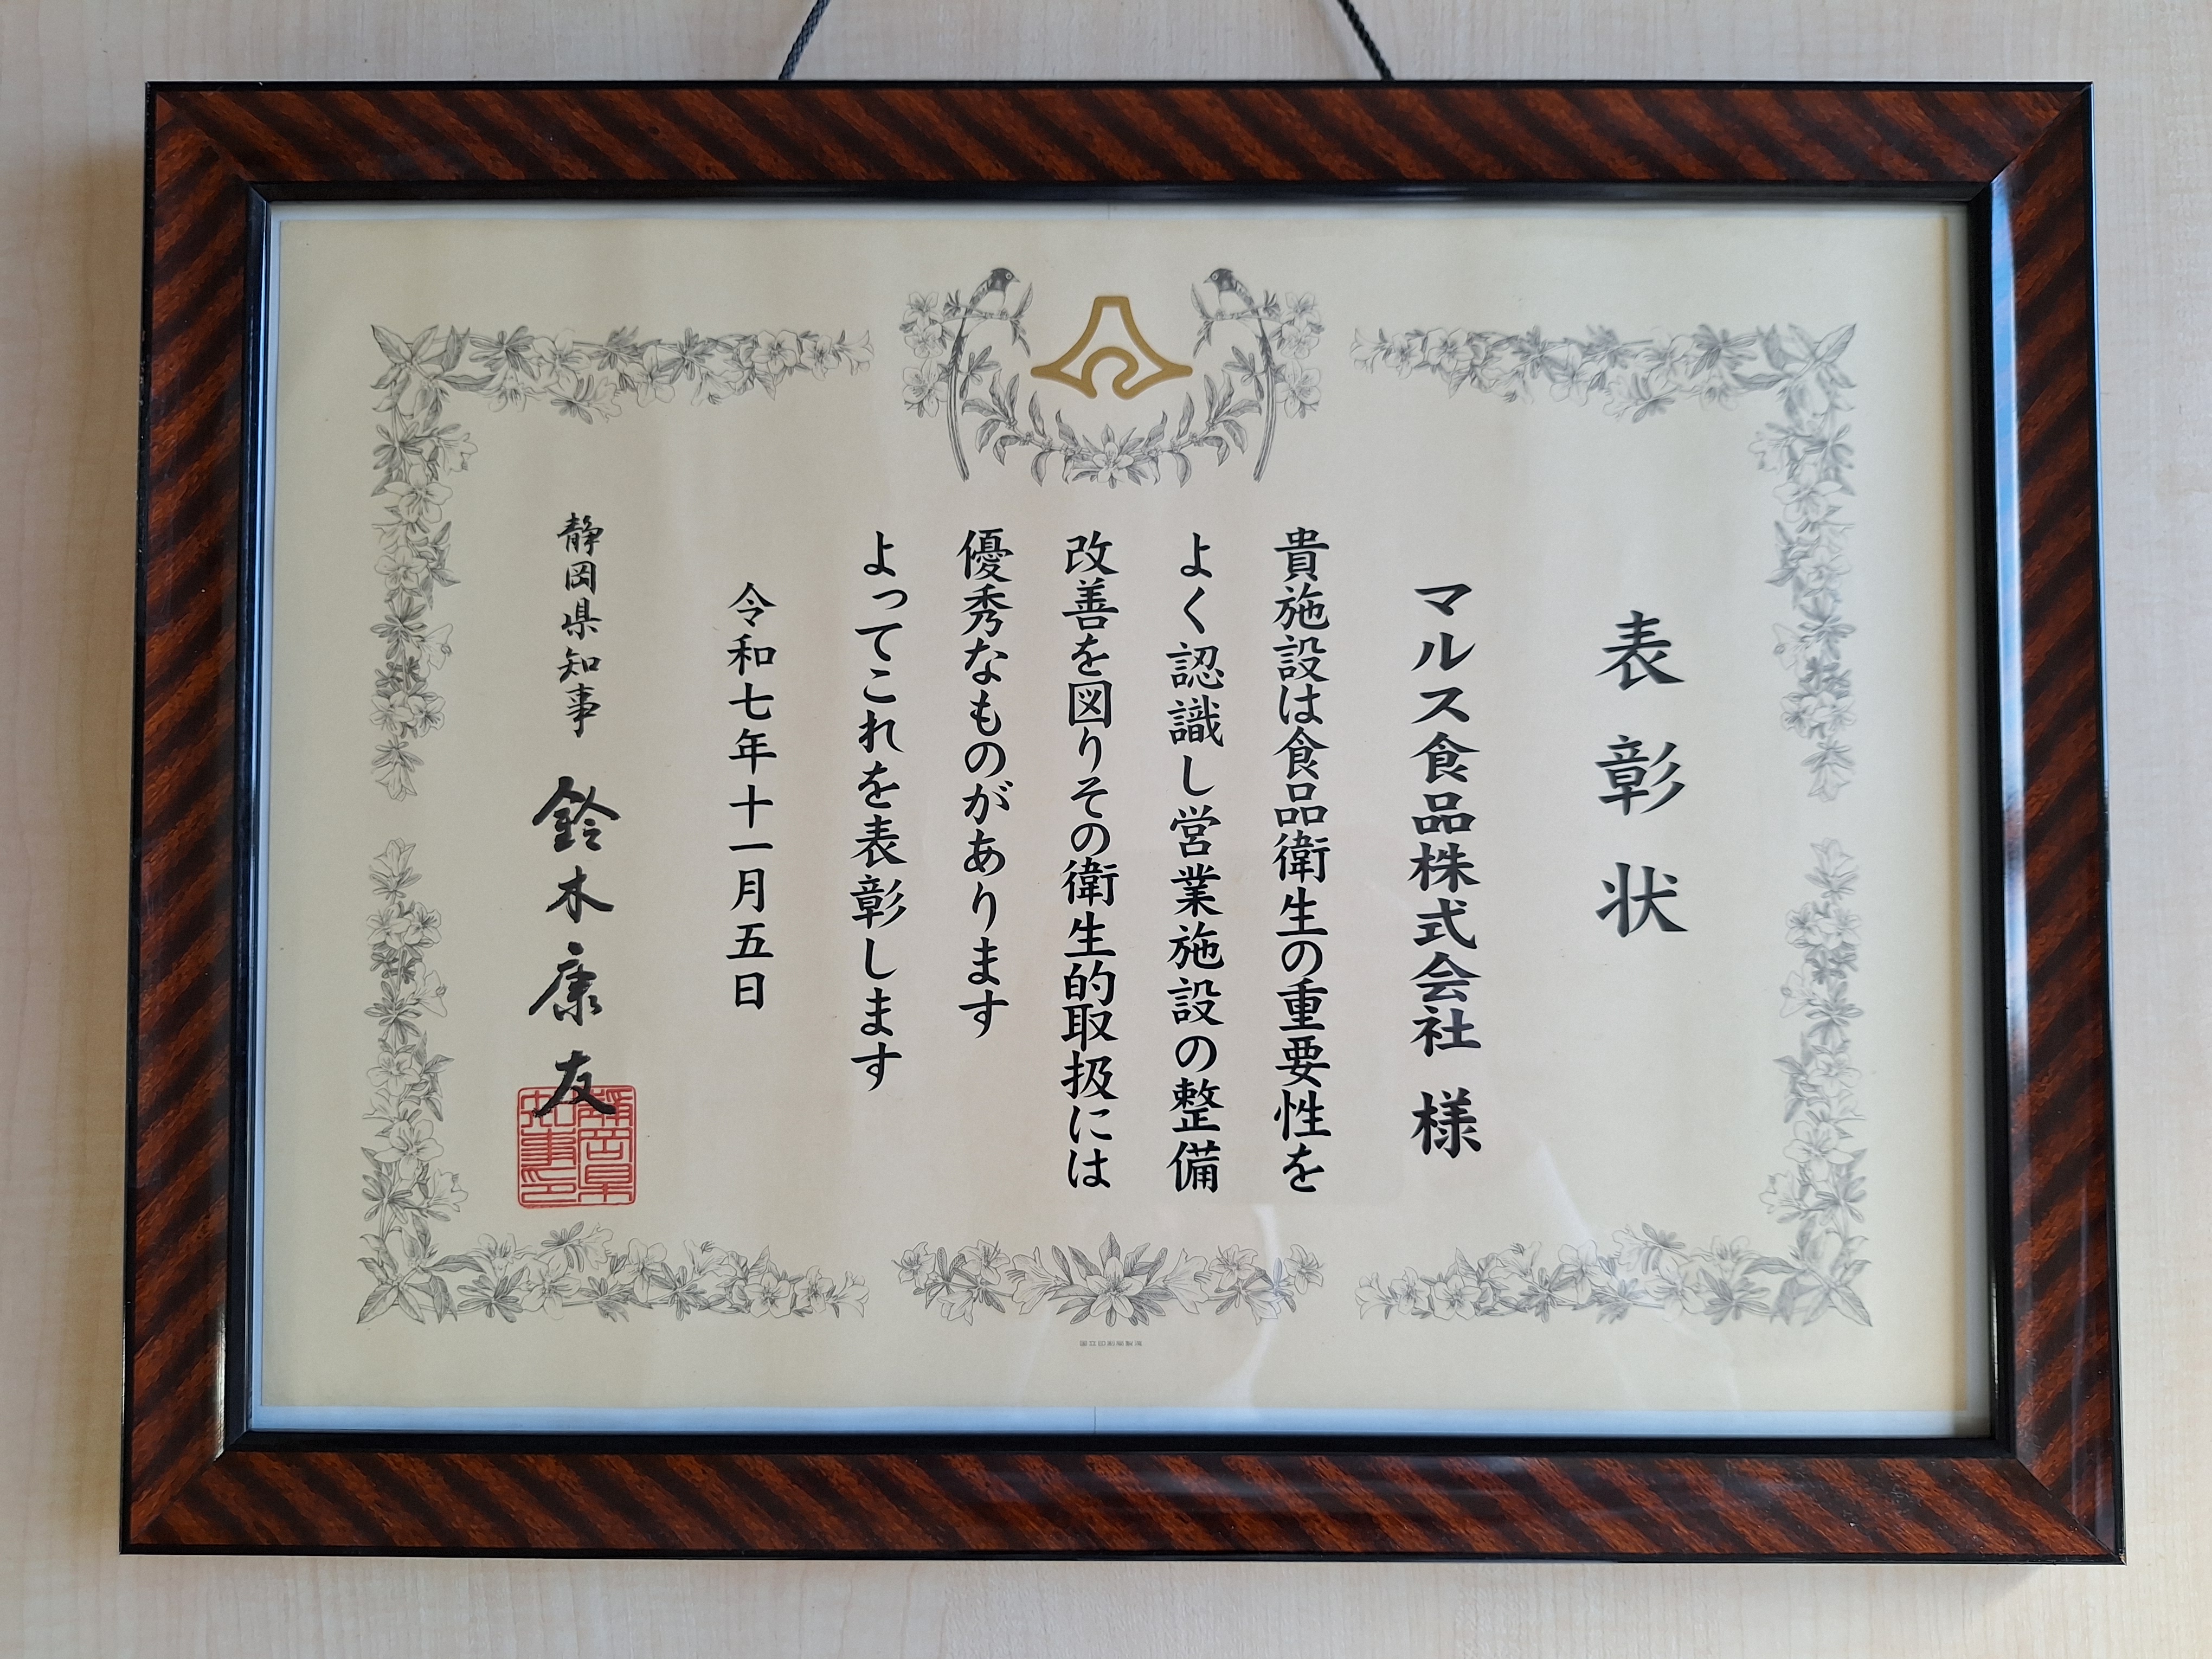 表彰状
マルス食品株式会社 様
貴施設は食品衛生の重要性を
よく認識し営業施設の整備
改善を図りその衛生的取扱には
優秀なものがあります
よってこれを表彰します
令和七年十一月五日
静岡県知事 鈴木康友
静岡県
知事印
国立印刷局製造